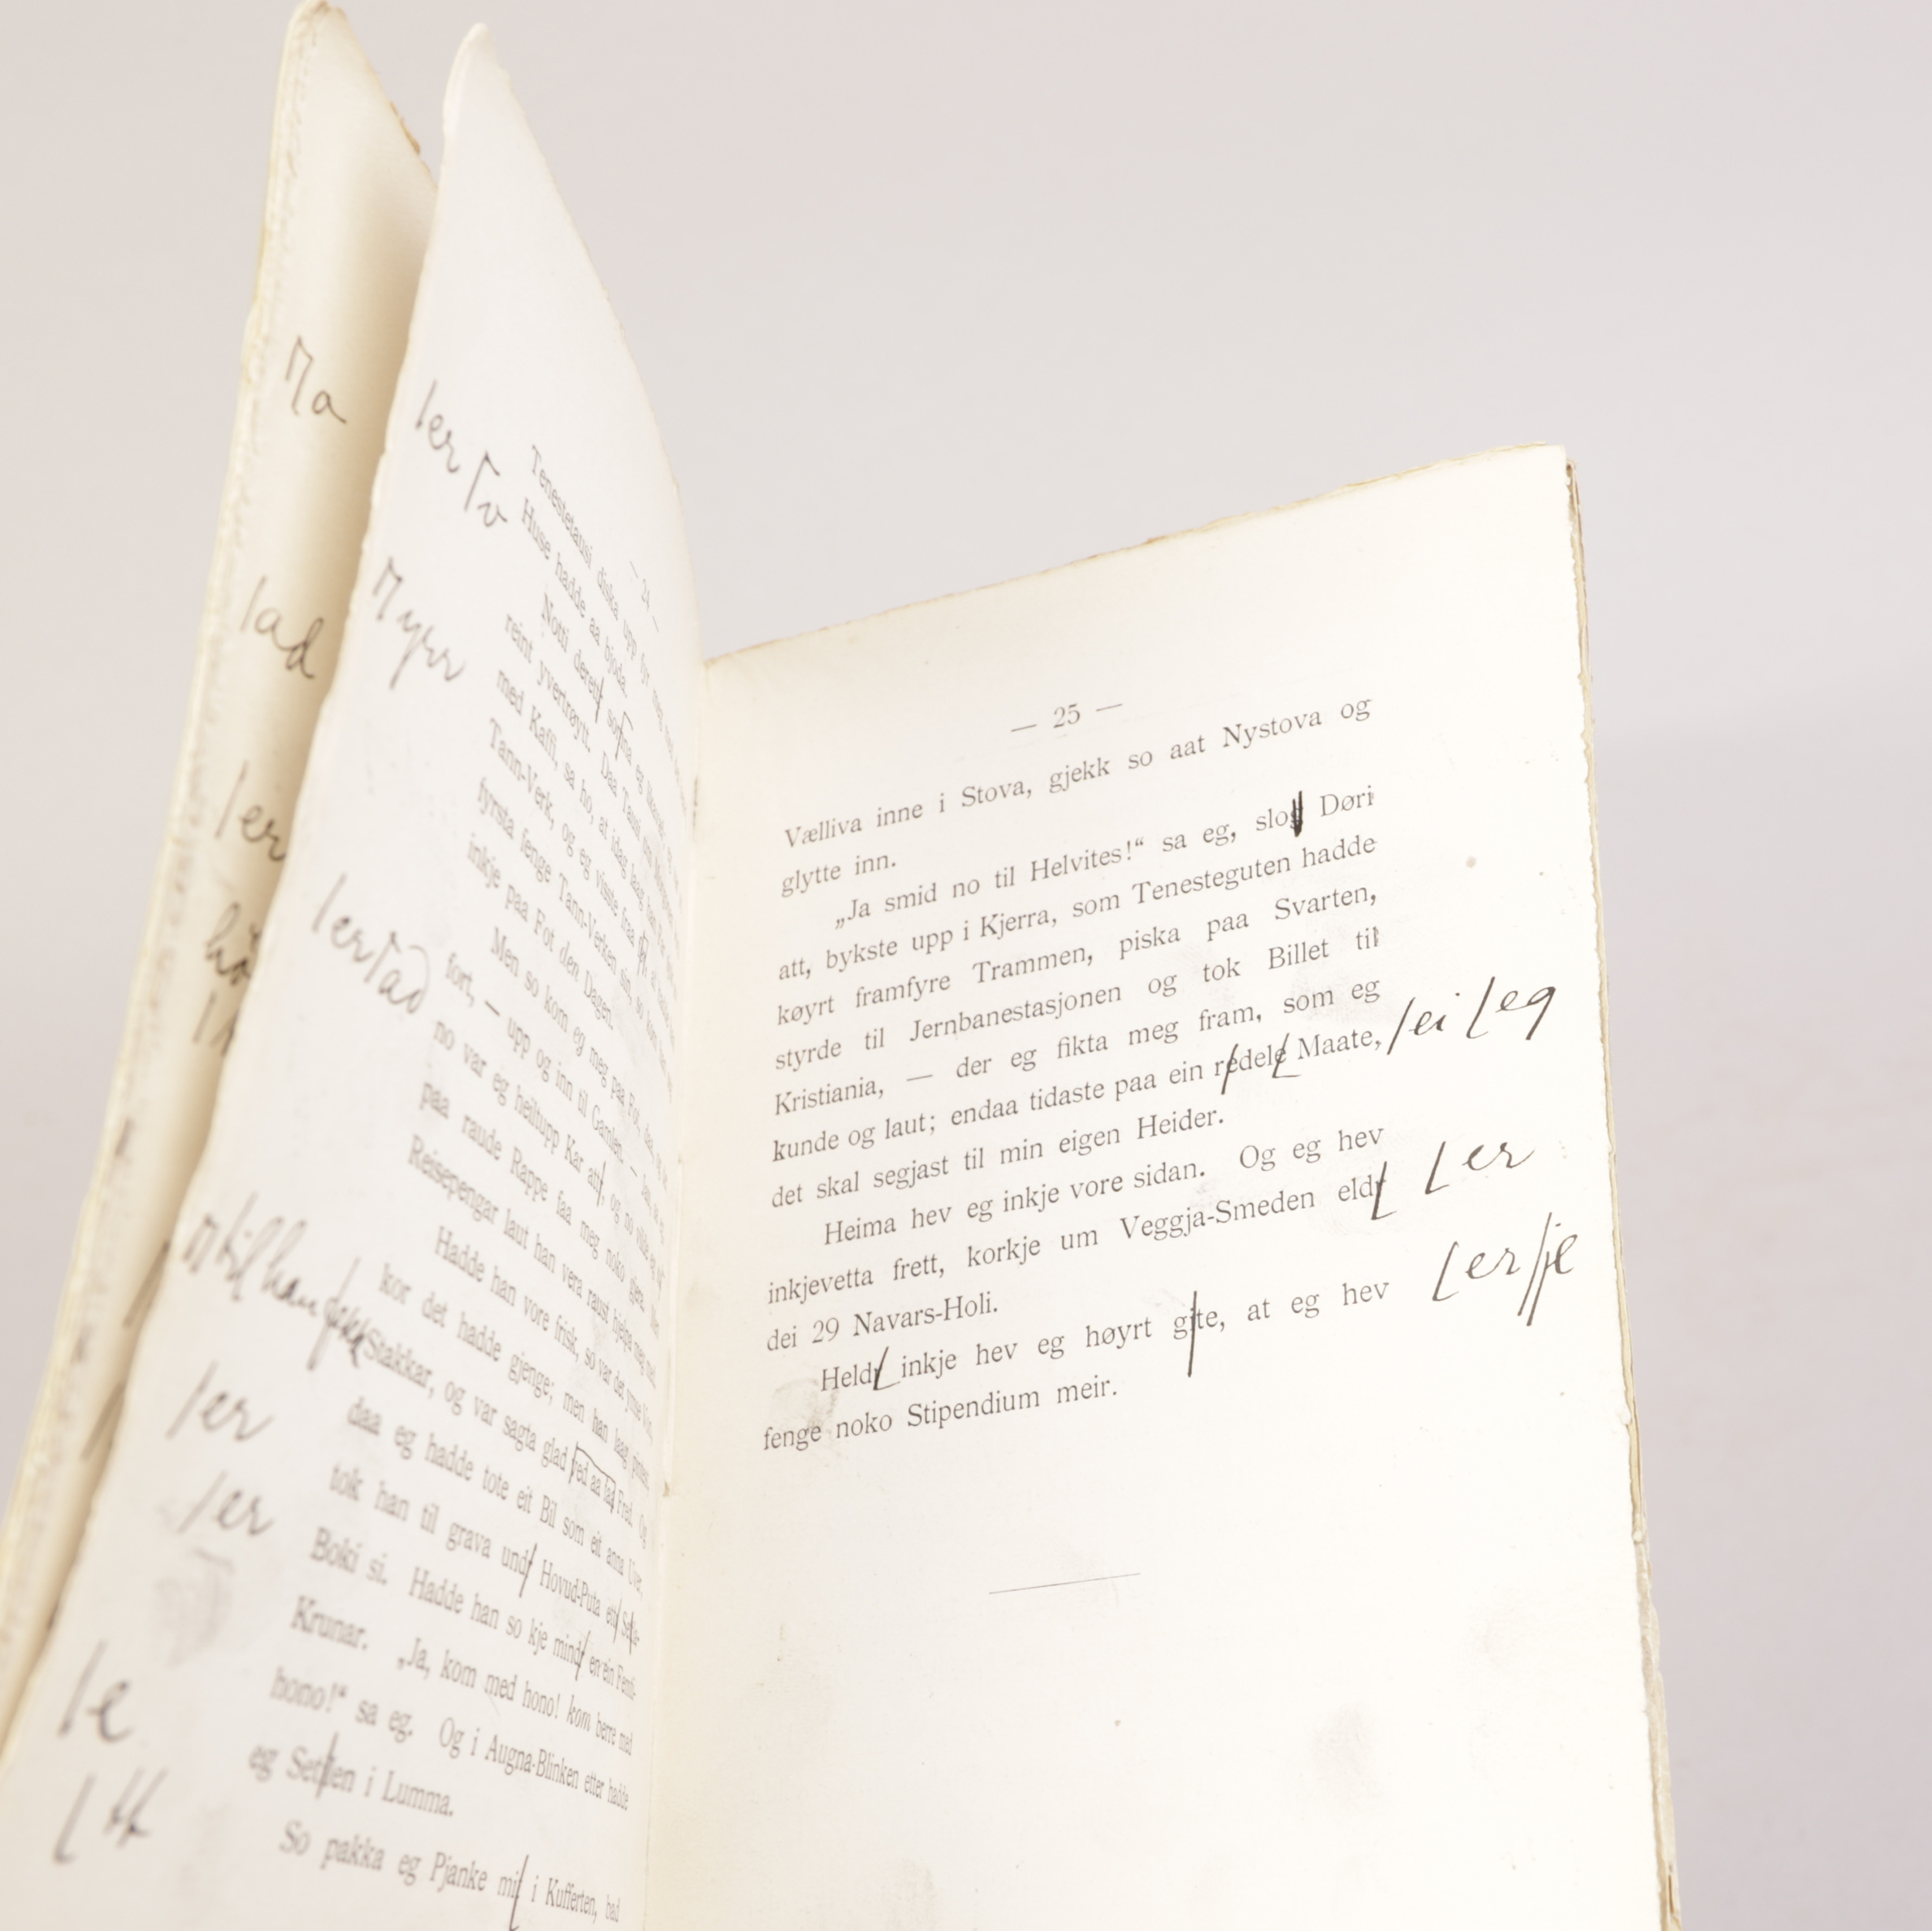 ла
lad
ler
— 24 —
ler
Tenestetausi diska upp
Huse hadde aa bjoda.
Notti derett
reint yvertrøytt. Daa
med Kaffi, sa ho, at idag laag
Tann-Verk, og eg visste fraa
fyrsta fenge Tann-Verken sin, so
inkje paa Fot den Dagen.
Men so kom eg meg paa Fot,
fort, — upp og inn til Gamlen.
no var eg heiltupp Kar att, og no
paa raude Rappe faa meg noko gjera.
Reisepengar laut han vera raust hjelpa meg med.
Hadde han vore frisk, so var det
kor det hadde gjenge; men han laag
Stakkar, og var sagta glad ved aa faa Fred. Og
daa eg hadde tote eit Bil som eit anna Uver,
tok han til grava undr Hovud-Puta
Boki si. Hadde han so kje mindr en ein Femti-
Krunar. „Ja, kom med hono! kom berre med
hono!“ sa eg. Og i Augna-Blinken etter hadde
eg Setlen i Lumma.
So pakka eg Pjanke mi i Kufferten, bad
ler
ler
le
[tt
— 25 —
Vælliva inne i Stova, gjekk so aat Nystova og
glytte inn.
„Ja smid no til Helvites!“ sa eg, slog Døri
att, bykste upp i Kjerra, som Tenesteguten hadde
køyrt framfyre Trammen, piska paa Svarten,
styrde til Jernbanestasjonen og tok Billet til
Kristiania, — der eg fikta meg fram, som eg
kunde og laut; endaa tidaste paa ein redele Maate, /ei [eg
det skal segjast til min eigen Heider.
Heima hev eg inkje vore sidan. Og eg hev
inkjevetta frett, korkje um Veggja-Smeden eldr [er
dei 29 Navars-Holi.
Heldr inkje hev eg høyrt gite, at eg hev [er /je
fenge noko Stipendium meir.